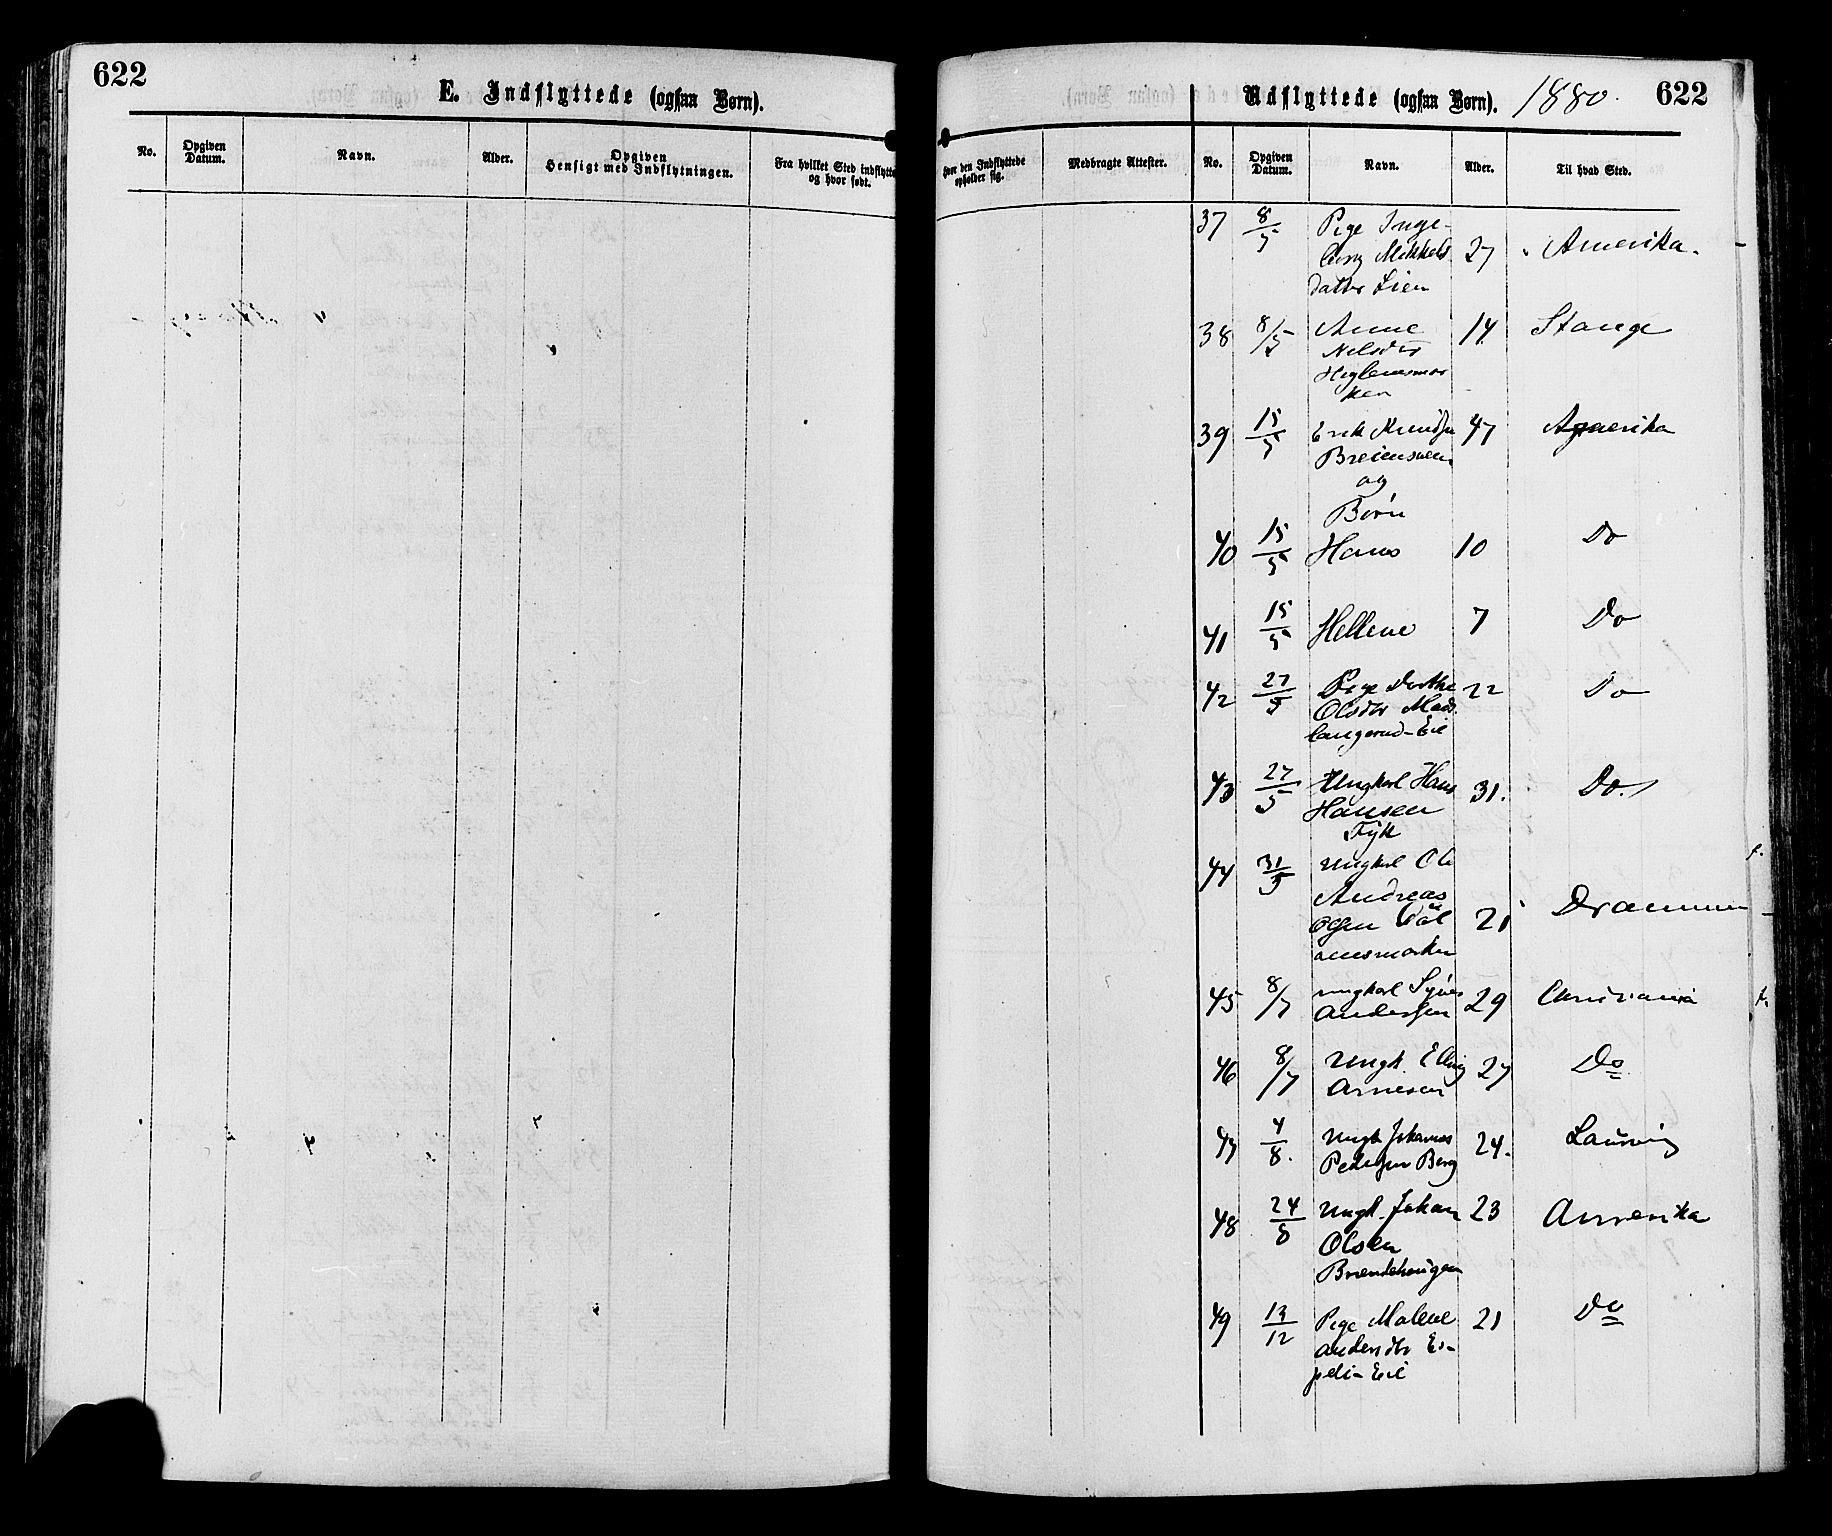 622
E. Indflyttede (ogsaa Børn).
No.
Opgiven Datum.
Navn.
Alder.
Opgiven Hensigt med Indflytningen.
Fra hvilket Sted indflytte og hvor født.
Hvor den Indflyttede opholder sig.
Medbragte Attester.
Udflyttede (ogsaa Børn). 1880.
622
No.
Opgiven Datum.
Navn.
Alder.
Til hvad Sted.
37 8/5 Pige Inge-
borg Mikkels 27 Amerika.
datter Lien
38 8/5 Anne 14 Stange
Nilsdtr
ken
39 15/5 Erik Knudsen 47 Amerika
og
Børn
40 15/5 Hans 10 Do
41 15/5 Hellene 7 Do
42 27/5 Pige Dorthe 22 Do
Olsdtr Mads
langerud-Eie
43 27/5 Ungkarl Hans 31. Do.
Hansen
44 31/5 Ungkarl Ole
Andreas
Olsen 21 Drammen
45 8/7 Ungkarl 29 Christiania
Andersen
46 8/7 Ungk. Elling 27 Do
Arnesen
47 4/8. Ungk Johannes 24. Laurvig
Pedersen Berg
48 24/8 Ungk. Johan 23 Amerika
Olsen
Brendehaugen
49 13/12 Pige Malene 21 Do
Andersdtr Es-
peli-Eie